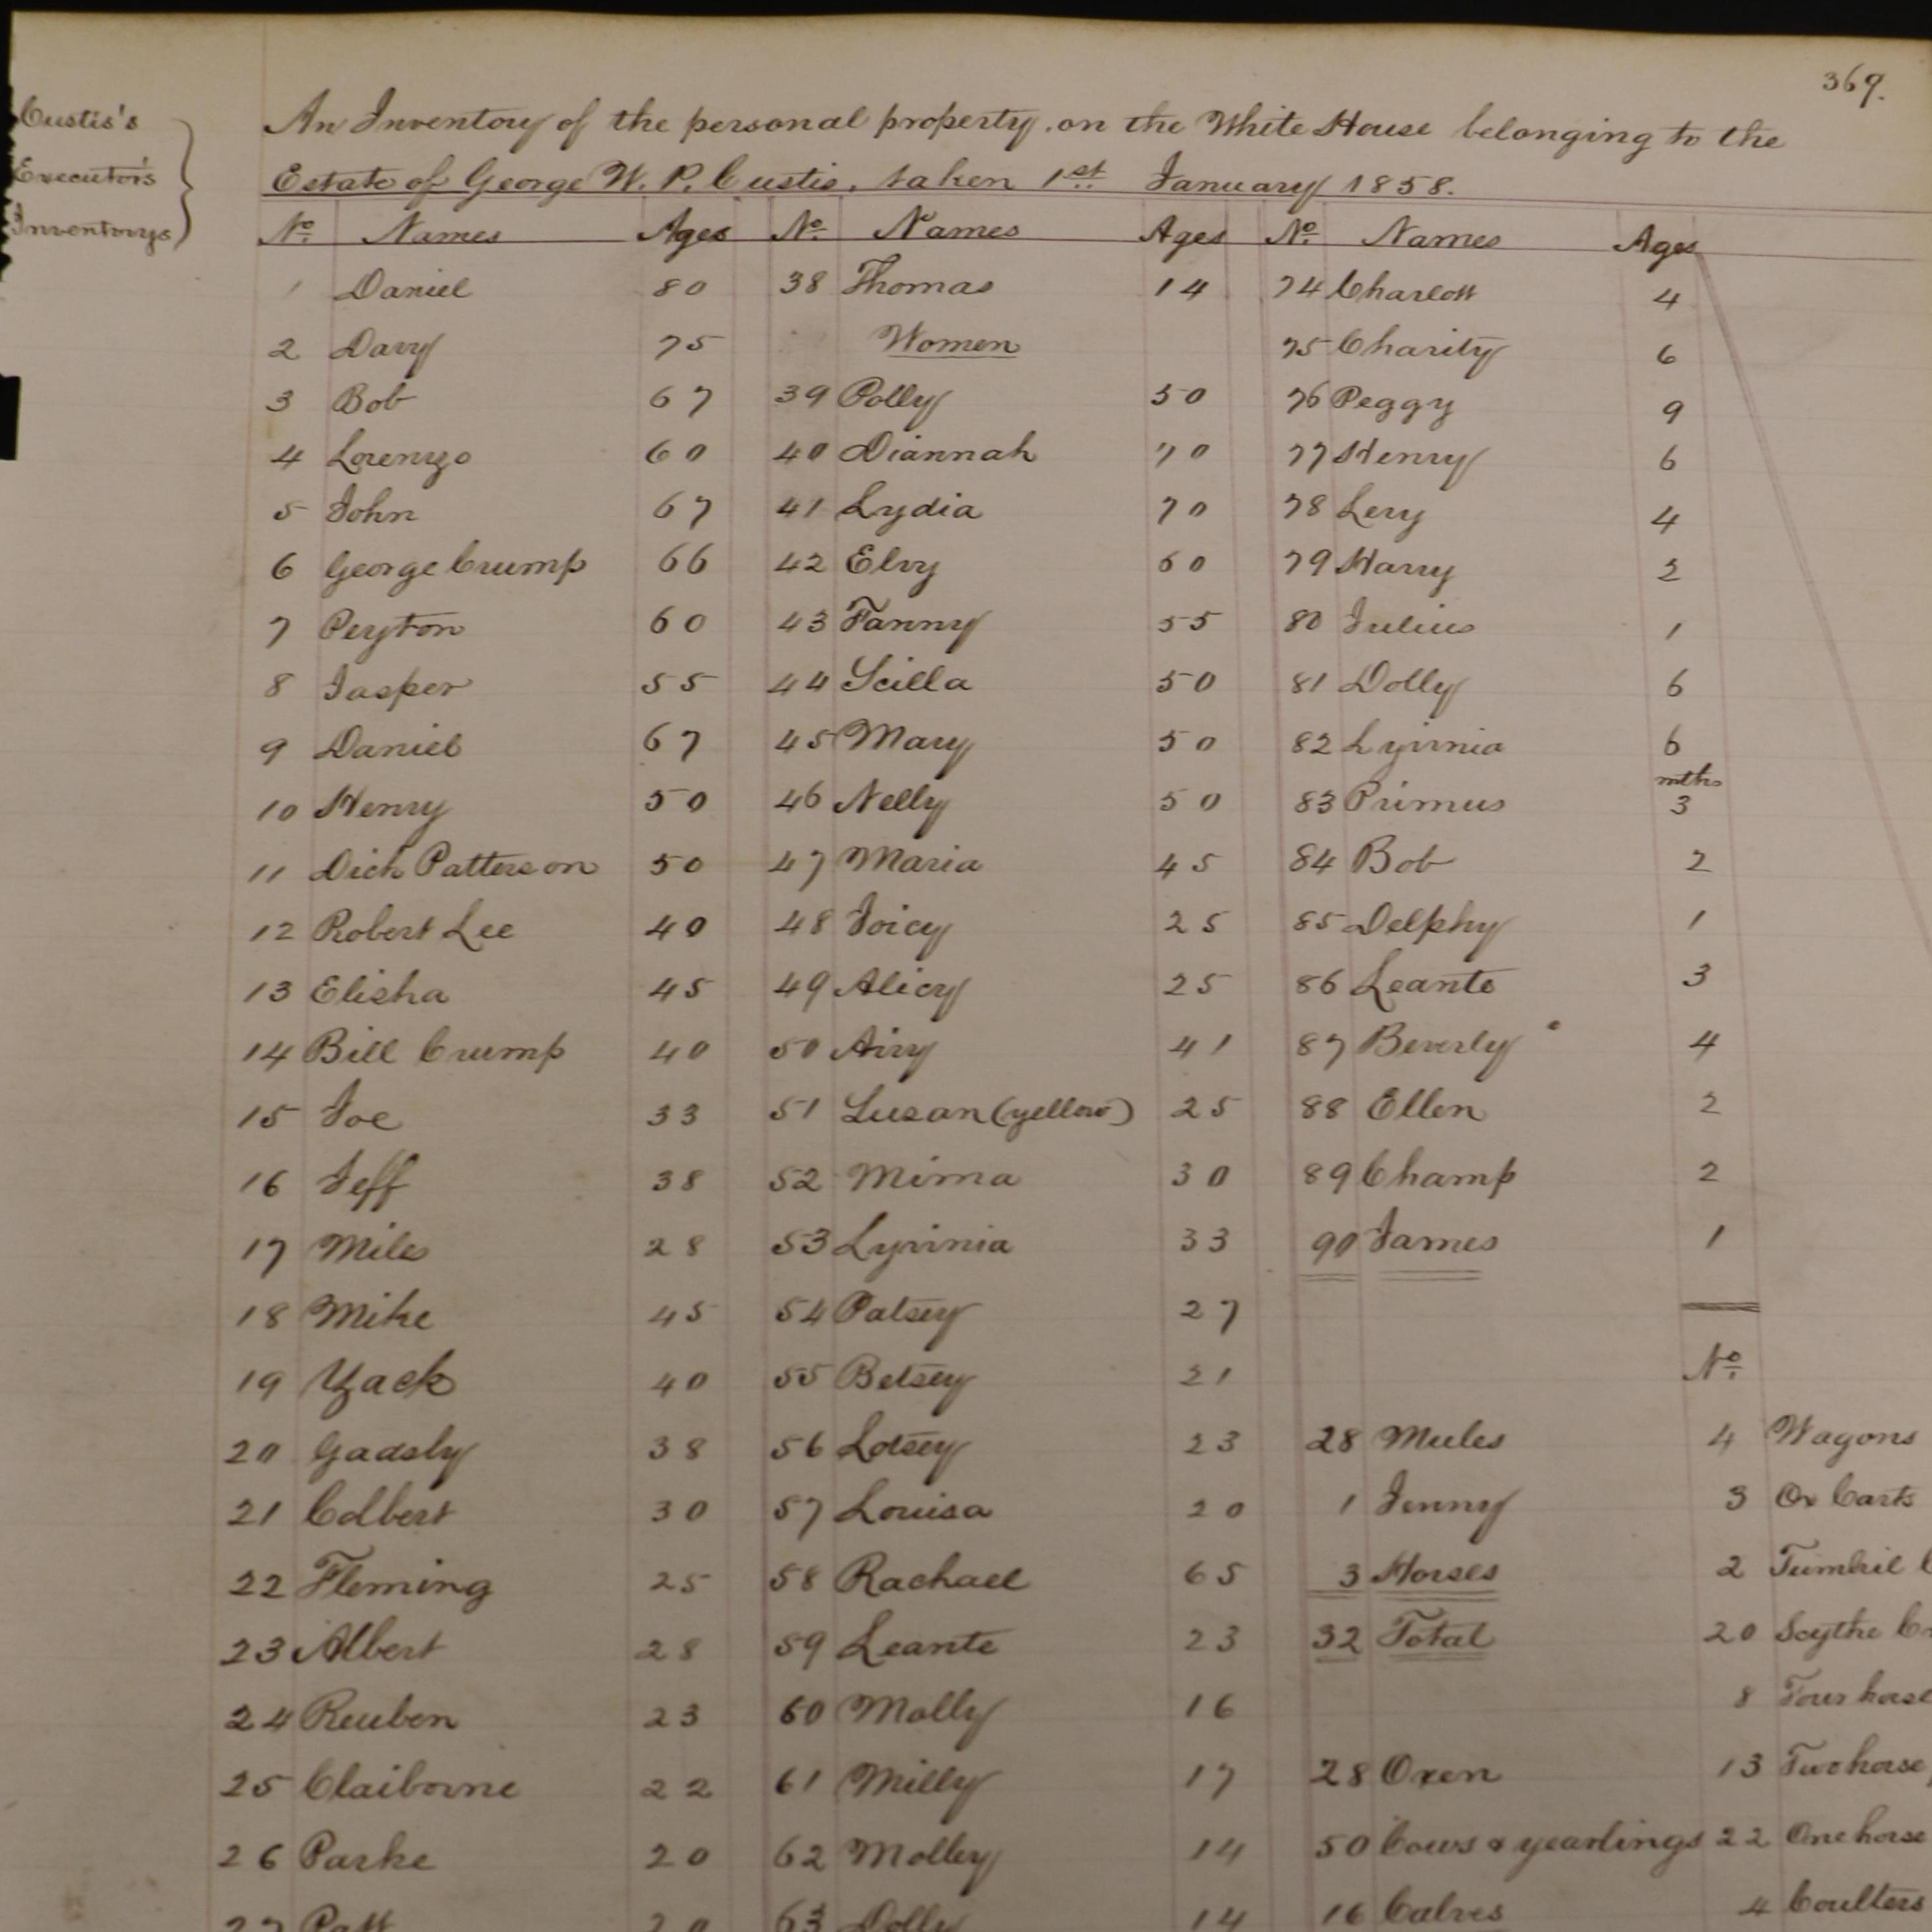 369.
Custis's
Executor's
Inventorys
An Inventory of the personal property on the White House belonging to the
Estate of George W. P. Custis, taken 1st January 1858.
No. Names Ages No. Names Ages No. Names Ages
1 Daniel 80 38 Thomas 14 74 Charlott 4
2 Davy 75 Women 75 Charity 6
3 Bob 67 39 Polly 50 76 Peggy 9
4 Lorenzo 60 40 Diannah 70 77 Henry 6
5 John 67 41 Lydia 70 78 Levy 4
6 George Crump 66 42 Elvy 60 79 Harry 2
7 Peyton 60 43 Fanny 55 80 Julius 1
8 Jasper 55 44 Scilla 50 81 Dolly 6
9 Daniel 67 45 Mary 50 82 Lyvinia 6
10 Henry 50 46 Nelly 50 83 Primus mths 3
11 Dick Patterson 50 47 Maria 45 84 Bob 2
12 Robert Lee 40 48 Joicy 25 85 Delphy 1
13 Elisha 45 49 Alicy 25 86 Leante 3
14 Bill Crump 40 50 Airy 41 87 Beverly 4
15 Joe 33 51 Susan (yellow) 25 88 Ellen 2
16 Jeff 38 52 Mima 30 89 Champ 2
17 Miles 28 53 Lyvinia 33 90 James 1
18 Mike 45 54 Patsey 27
19 Zack 40 55 Betsey 21 No.
20 Gadsby 38 56 Lotsey 23 28 Mules 4 Wagons
21 Colbert 30 57 Louisa 20 1 Jenny 3 Ox Carts
22 Fleming 25 58 Rachael 65 3 Horses 2 Tumbril
23 Albert 28 59 Leante 23 32 Total 20 Scythe
24 Reuben 23 60 Molly 16 8 Four horse
25 Claiborne 22 61 Milly 17 28 Oxen 13 Two horse
26 Parke 20 62 Molley 14 50 Cows & yearlings 22 One horse
27 Patt 20 63 Dolly 14 16 Calves 4 Coulters